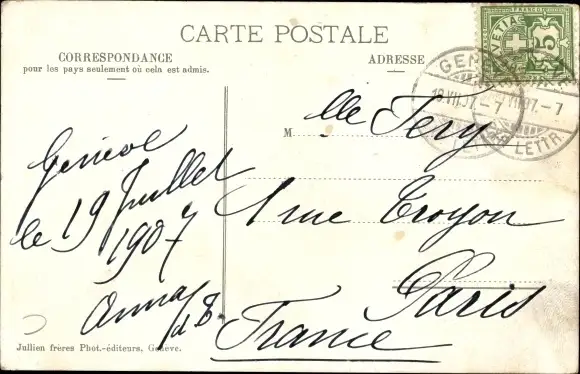 CARTE POSTALE
CORRESPONDANCE
pour les pays seulement où cela est admis.
ADRESSE
HELVETIA
FRANCO
5
GEN
19.VII.07.–7
VII.07.–7
LETTR
Genève
le 19 Juillet
1907
Anna
d B
Mlle Fery
1 rue Troyon
Paris
France
Jullien frères Phot.-éditeurs, Genève.